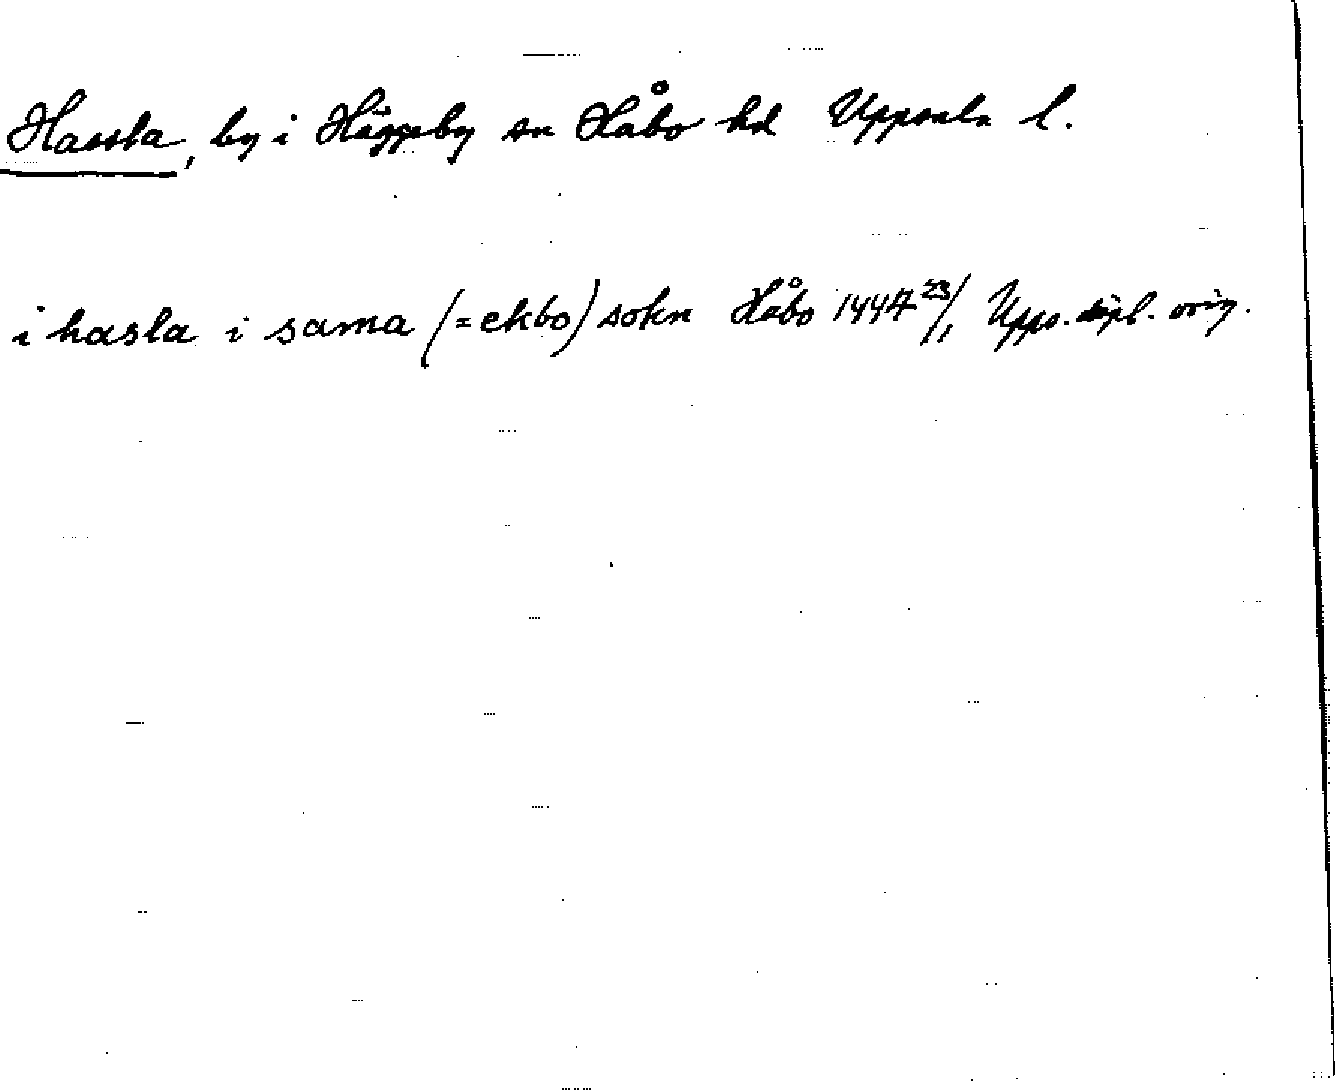 Hassla, by i Häggeby sn Håbo hd Uppsala l.
i hasla i sama (=ekbo) sokn Håbo 1447 23/1 Upps. dipl. orig.